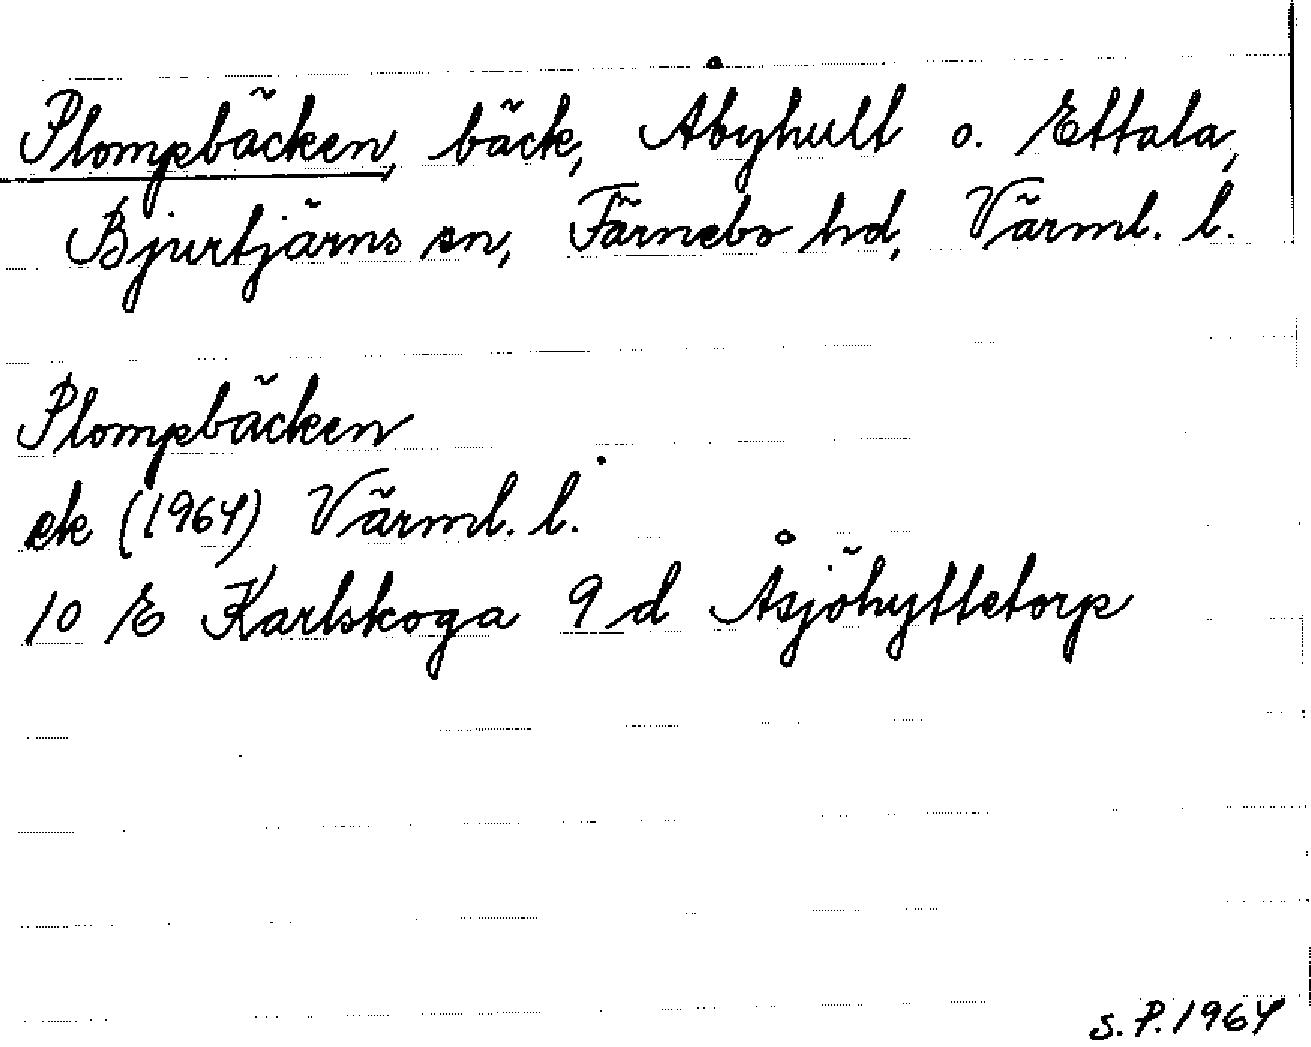 Plompbäcken, bäck, Åbyhult o. Ettala,
Bjurtjärns sn, Färnebo hd, Värml. l.
Plompbäcken
ek (1964) Värml. l.
10 E Karlskoga 9 d Åsjöhyttetorp
S. P. 1964